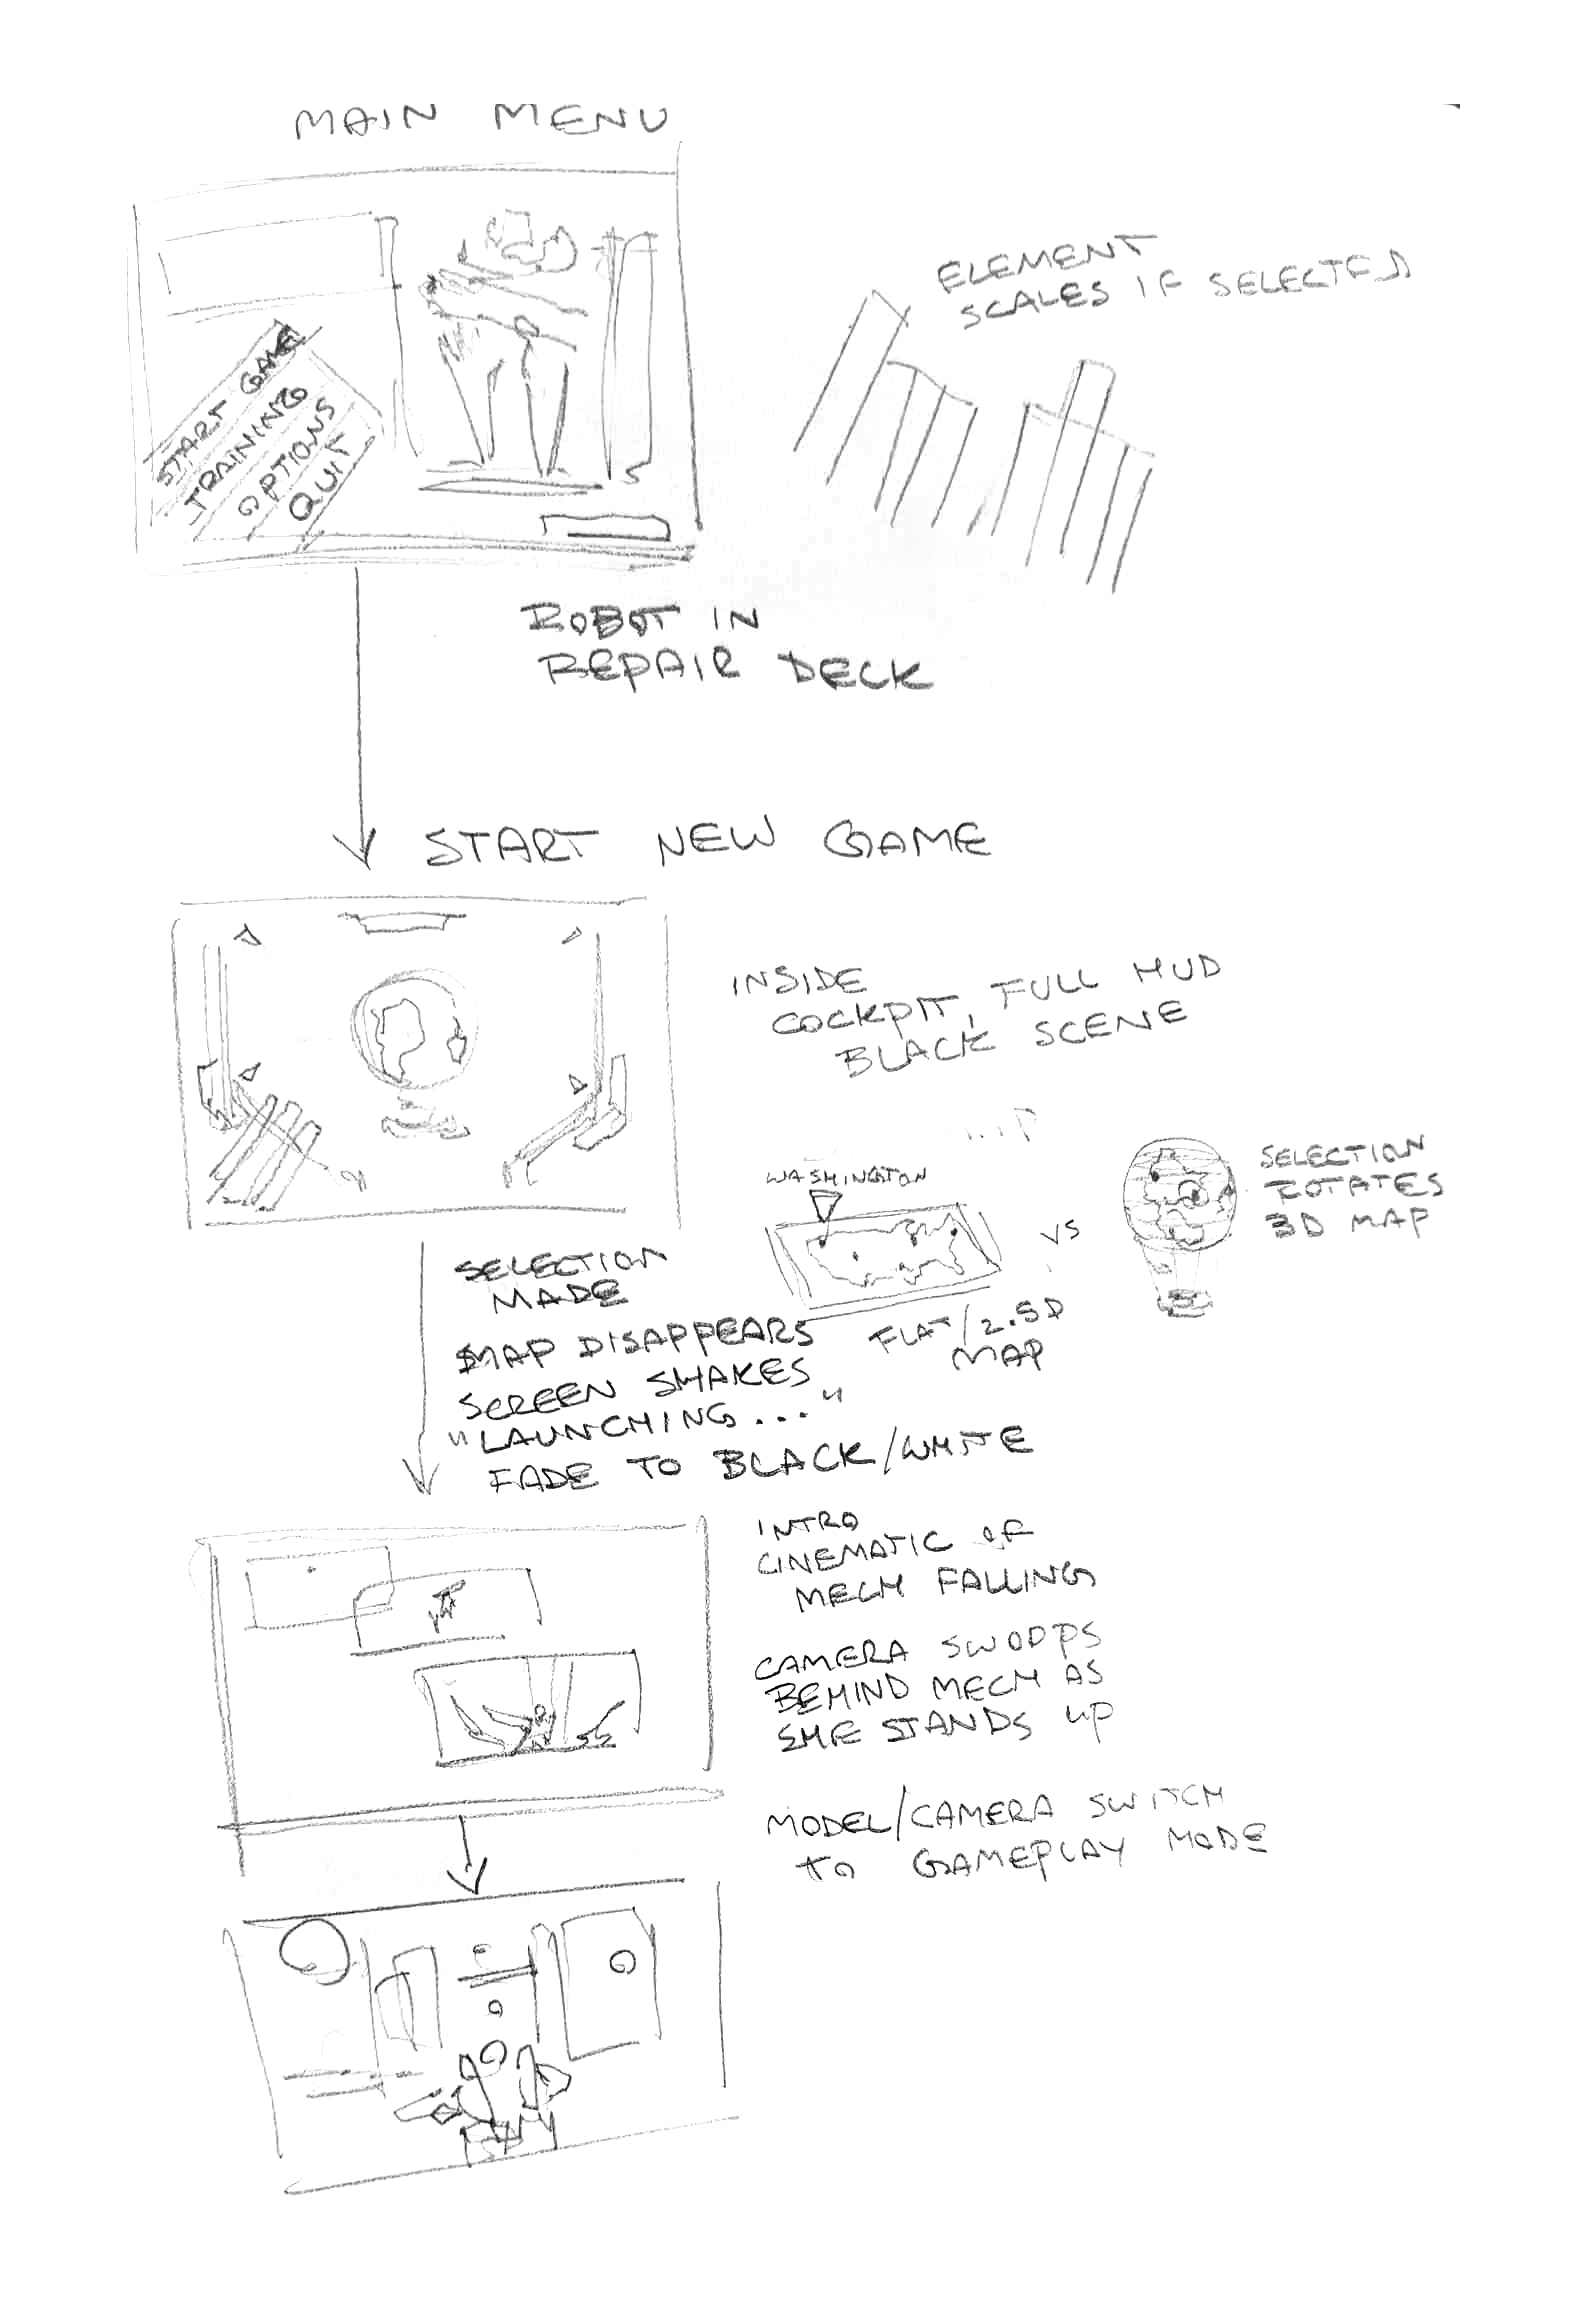 MAIN MENU
ELEMENT
SCALES IF SELECTED
START GAME
TRAINING
OPTIONS
QUIT
ROBOT IN
REPAIR DECK
START NEW GAME
INSIDE
COCKPIT, FULL HUD
BLACK SCENE
WASHINGTON
VS
SELECTION
ROTATES
3D MAP
FLAT/2.5D
MAP
SELECTION
MADE
MAP DISAPPEARS
SCREEN SHAKES
"LAUNCHING..."
FADE TO BLACK/WHITE
INTRO
CINEMATIC OF
MECH FALLING
CAMERA SWOOPS
BEHIND MECH AS
SHE STANDS UP
MODEL/CAMERA SWITCH
TO GAMEPLAY MODE